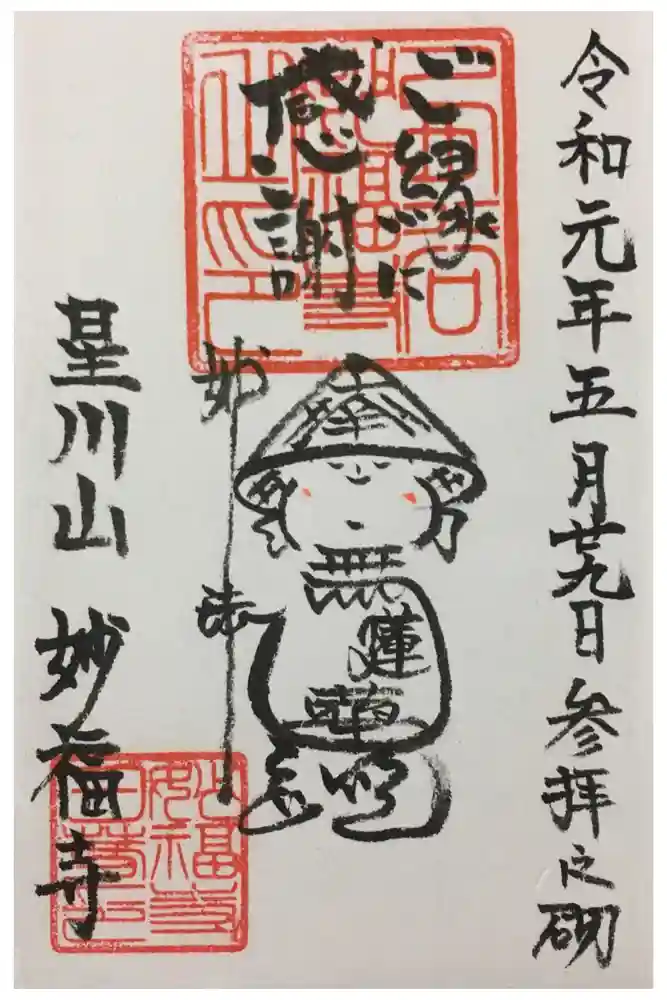 令和元年五月廿九日 参拝之砌
ご縁に
感謝
妙法
無
蓮
星川山 妙福寺